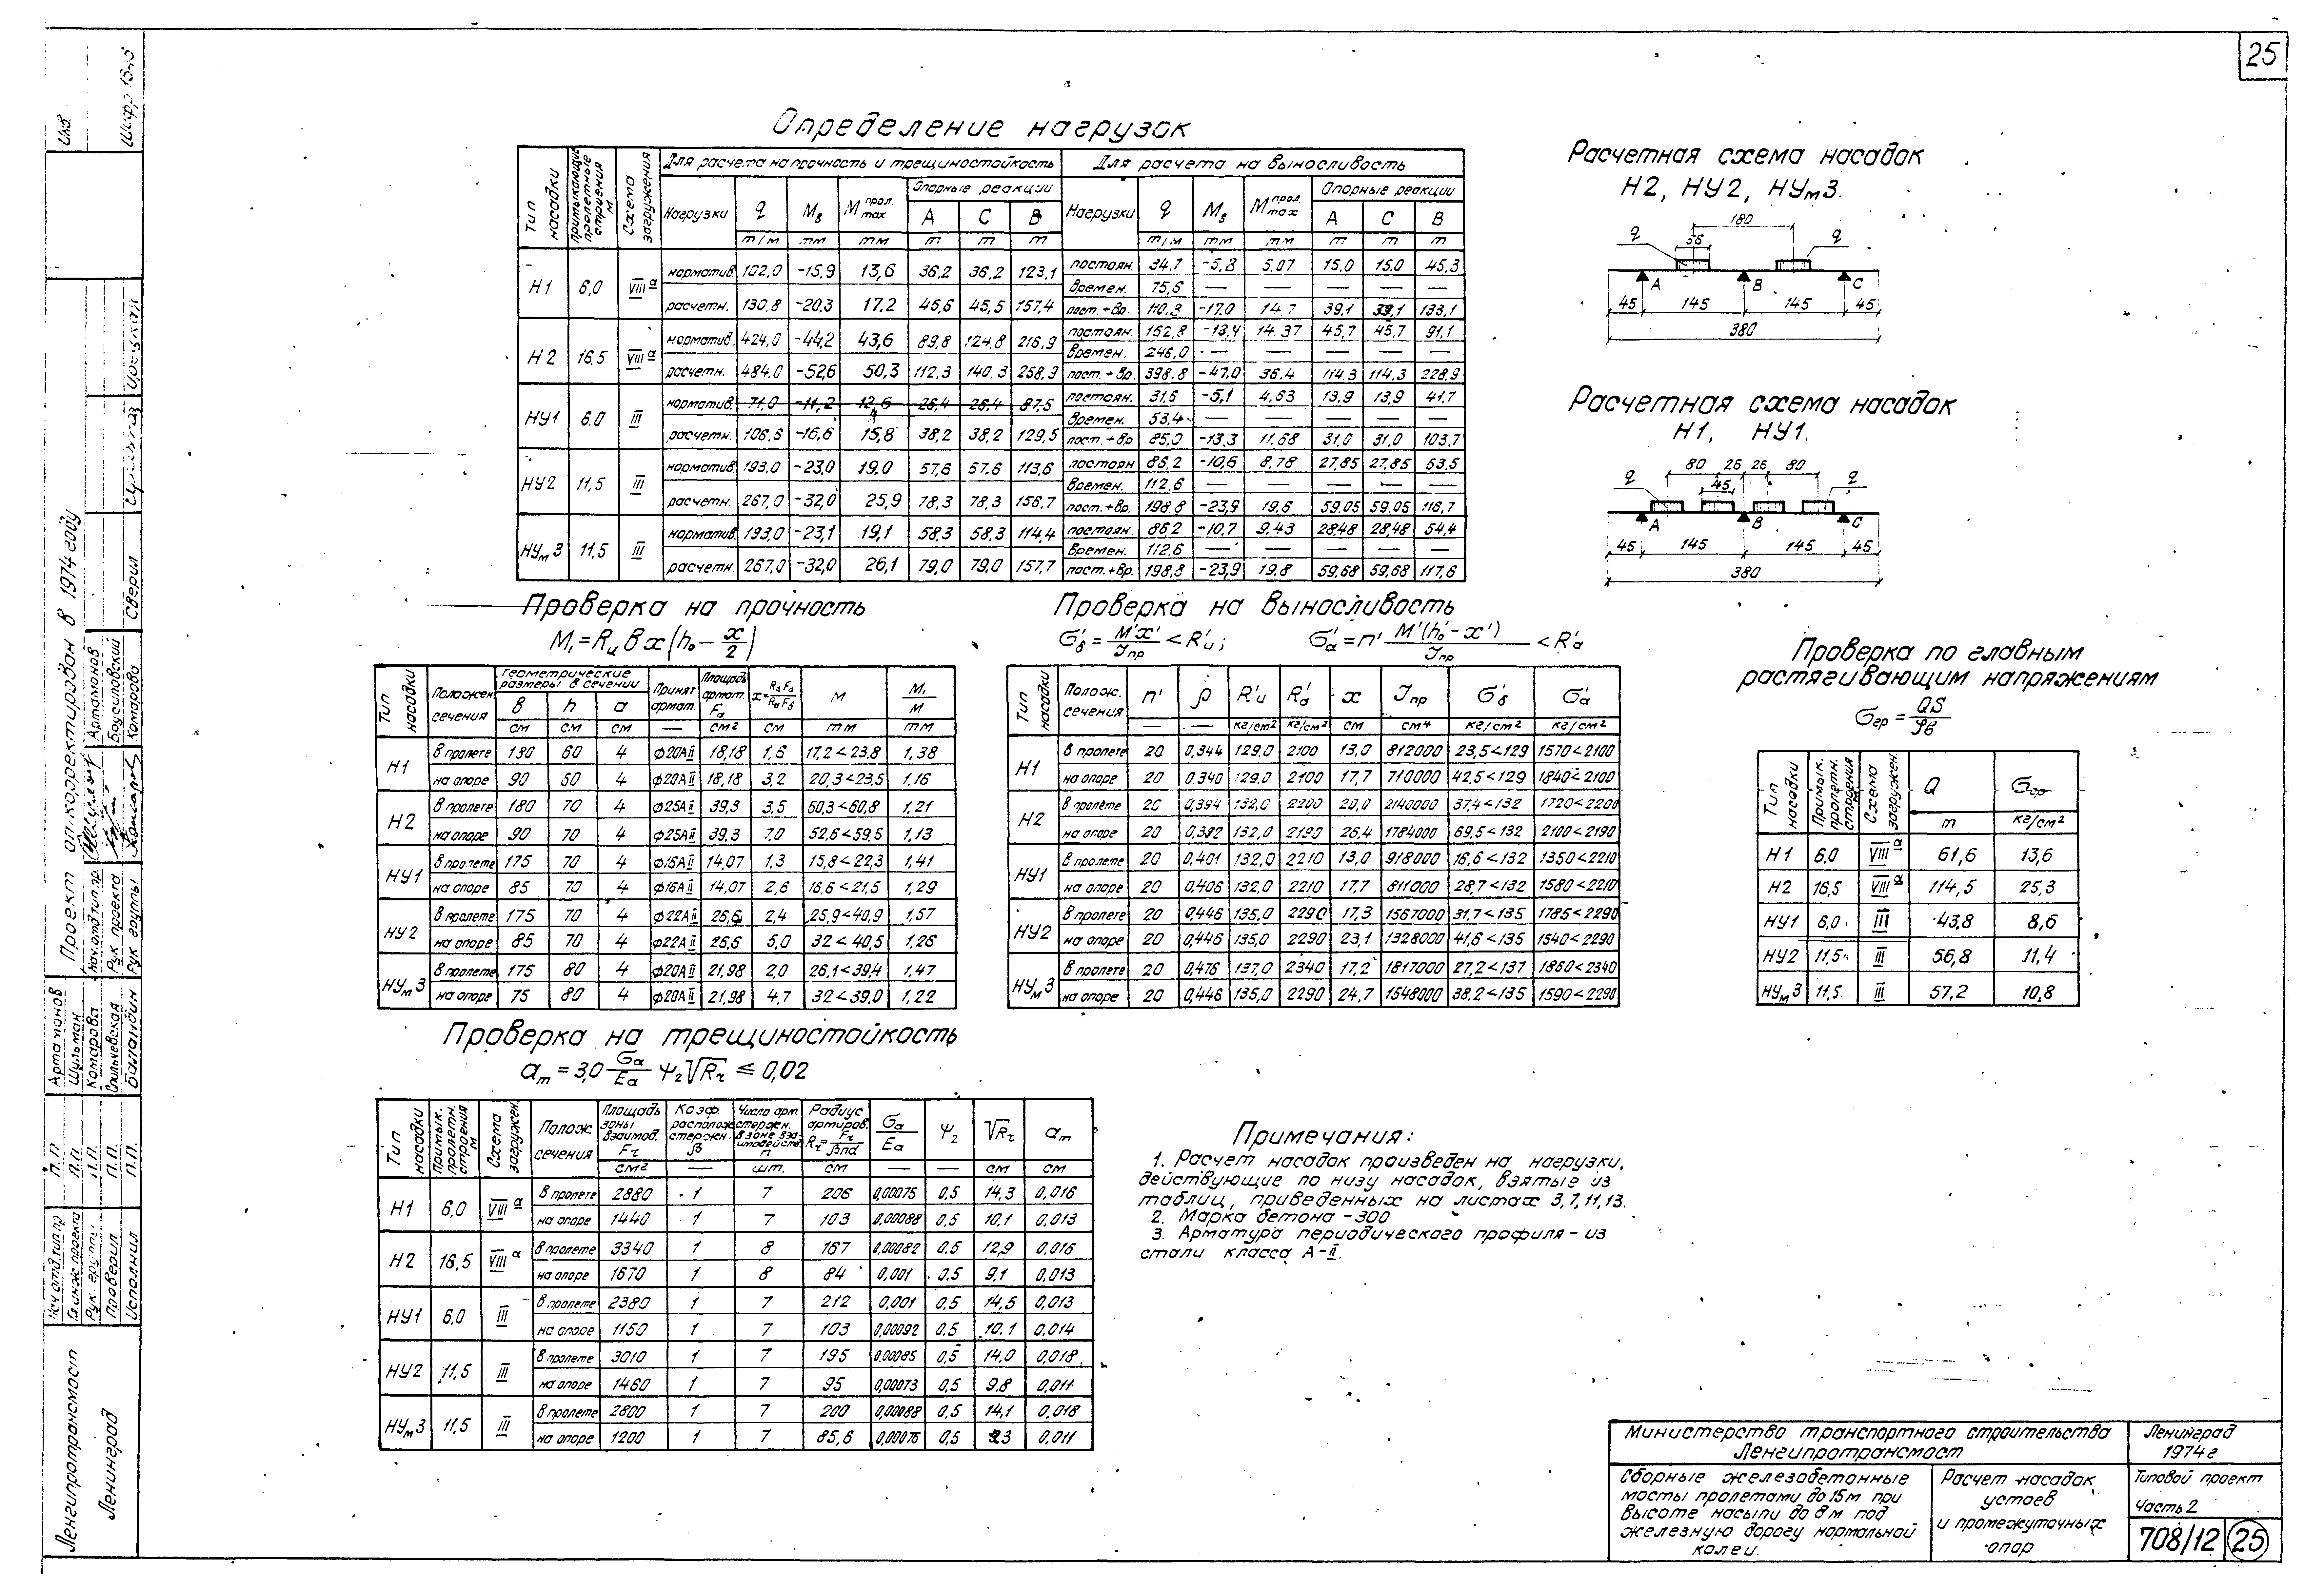 25
Определение нагрузок
Тип насадки | Примыкающие пролетные строения м | Схема загружения | Для расчета на прочность и трещиностойкость | Для расчета на выносливость
Нагрузки | q | M_B | M max прол. | Опорные реакции | Нагрузки | q | M_B | M max прол. | Опорные реакции
A | C | B | A | C | B
т/м | тм | тм | т | т | т | т/м | тм | тм | т | т | т
Н1 | 6,0 | VIII а | норматив. | 102,0 | -15,9 | 13,6 | 36,2 | 36,2 | 123,1 | постоян. | 34,7 | -5,8 | 5,07 | 15,0 | 15,0 | 45,3
времен. | 75,6 | — | — | — | — | —
расчетн. | 130,8 | -20,3 | 17,2 | 45,6 | 45,5 | 157,4 | пост.+вр. | 110,3 | -17,0 | 14,7 | 39,1 | 39,1 | 133,1
Н2 | 16,5 | VIII а | норматив. | 424,0 | -44,2 | 43,6 | 89,8 | 124,8 | 216,9 | постоян. | 152,8 | -13,4 | 14,37 | 45,7 | 45,7 | 91,1
времен. | 246,0 | — | — | — | — | —
расчетн. | 484,0 | -52,6 | 50,3 | 112,3 | 140,3 | 258,3 | пост.+вр. | 398,8 | -47,0 | 36,4 | 114,3 | 114,3 | 228,9
НУ1 | 6.0 | III | норматив. | 71,0 | -11,2 | 12,6 | 26,4 | 26,4 | 87,5 | постоян. | 31,6 | -5,1 | 4,63 | 13,9 | 13,9 | 41,7
времен. | 53,4 | — | — | — | — | —
расчетн. | 106,6 | -16,6 | 15,8 | 38,2 | 38,2 | 129,5 | пост.+вр | 85,0 | -13,3 | 11,68 | 31,0 | 31,0 | 103,7
НУ2 | 11,5 | III | норматив. | 193,0 | -23,0 | 19,0 | 57,6 | 57,6 | 113,6 | постоян | 86,2 | -10,6 | 8,78 | 27,85 | 27,85 | 53,5
времен. | 112,6 | — | — | — | — | —
расчетн. | 267,0 | -32,0 | 25,9 | 78,3 | 78,3 | 156,7 | пост.+вр. | 198,8 | -23,9 | 19,6 | 59,05 | 59,05 | 116,7
НУм3 | 11,5 | III | норматив. | 193,0 | -23,1 | 19,1 | 58,3 | 58,3 | 114,4 | постоян. | 86,2 | -10,7 | 9,43 | 28,48 | 28,48 | 54,4
времен. | 112,6 | — | — | — | — | —
расчетн. | 267,0 | -32,0 | 26,1 | 79,0 | 79,0 | 157,7 | пост.+вр. | 198,8 | -23,9 | 19,8 | 59,68 | 59,68 | 117,6
Расчетная схема насадок
Н2, НУ2, НУм3.
180
q 56 q
A B C
45 145 145 45
380
Расчетная схема насадок
Н1, НУ1.
80 26 26 80
q 45 q
A B C
45 145 145 45
380
Проверка на прочность
M₁=Rи b x (h₀ - x/2)
Тип насадки | Положен. сечения | Геометрические размеры в сечении | Принят армат | Площадь армат. Fа | x= | M | M₁/M
b | h | a
см | см | см | — | см² | см | тм | тм
Н1 | в пролете | 180 | 60 | 4 | ф20АII | 18,18 | 1,6 | 17,2<23,8 | 1,38
на опоре | 90 | 60 | 4 | ф20АII | 18,18 | 3,2 | 20,3<23,5 | 1,16
Н2 | в пролете | 180 | 70 | 4 | ф25АII | 39,3 | 3,5 | 50,3<60,8 | 1,21
на опоре | 90 | 70 | 4 | ф25АII | 39,3 | 7,0 | 52,6<59,5 | 1,13
НУ1 | в пролете | 175 | 70 | 4 | ф16АII | 14,07 | 1,3 | 15,8<22,3 | 1,41
на опоре | 85 | 70 | 4 | ф16АII | 14,07 | 2,6 | 16,6<21,5 | 1,29
НУ2 | в пролете | 175 | 70 | 4 | ф22АII | 26,6 | 2,4 | 25,9<40,9 | 1,57
на опоре | 85 | 70 | 4 | ф22АII | 26,6 | 5,0 | 32<40,5 | 1,26
НУм3 | в пролете | 175 | 80 | 4 | ф20АII | 21,98 | 2,0 | 26,1<39,4 | 1,47
на опоре | 75 | 80 | 4 | ф20АII | 21,98 | 4,7 | 32<39,0 | 1,22
Проверка на выносливость
σ'б = M'x'/Jпр < R'и; σ'а = n' M'(h₀'-x')/Jпр < R'а
Тип насадки | Полож. сечения | n' | ρ | R'и | R'а | x | Jпр | σ'б | σ'а
— | — | кг/см² | кг/см² | см | см⁴ | кг/см² | кг/см²
Н1 | в пролете | 20 | 0,344 | 129,0 | 2100 | 13,0 | 812000 | 23,5<129 | 1570<2100
на опоре | 20 | 0,340 | 129,0 | 2100 | 17,7 | 710000 | 42,5<129 | 1840<2100
Н2 | в пролете | 20 | 0,394 | 132,0 | 2200 | 20,0 | 2140000 | 37,4<132 | 1720<2200
на опоре | 20 | 0,392 | 132,0 | 2190 | 26,4 | 1784000 | 69,5<132 | 2100<2190
НУ1 | в пролете | 20 | 0,401 | 132,0 | 2210 | 13,0 | 918000 | 16,6<132 | 1350<2210
на опоре | 20 | 0,406 | 132,0 | 2210 | 17,7 | 811000 | 28,7<132 | 1580<2210
НУ2 | в пролете | 20 | 0,446 | 135,0 | 2290 | 17,3 | 1567000 | 31,7<135 | 1785<2290
на опоре | 20 | 0,446 | 135,0 | 2290 | 23,1 | 1328000 | 41,6<135 | 1540<2290
НУм3 | в пролете | 20 | 0,476 | 137,0 | 2340 | 17,2 | 1817000 | 27,2<137 | 1860<2340
на опоре | 20 | 0,446 | 135,0 | 2290 | 24,7 | 1548000 | 38,2<135 | 1590<2290
Проверка по главным
растягивающим напряжениям
σгр = QS/Jb
Тип насадки | Примык. пролетн. строения м | Схема загружен. | Q | σгр
т | кг/см²
Н1 | 6,0 | VIII а | 61,6 | 13,6
Н2 | 16,5 | VIII а | 114,5 | 25,3
НУ1 | 6,0 | III | 43,8 | 8,6
НУ2 | 11,5 | III | 56,8 | 11,4
НУм3 | 11,5 | III | 57,2 | 10,8
Проверка на трещиностойкость
aт = 3,0 σа/Eа ψ₂√Rr ≤ 0,02
Тип насадки | Примык. пролетн. строения м | Схема загружен. | Полож. сечения | Площадь зоны взаимод. Fr | Коэф. располож. стержн. β | Число арм. стержн. в зоне взаимодейств. n | Радиус армиров. Rr=Fr/βnd | σа/Eа | ψ₂ | √Rr | aт
см² | — | шт. | см | — | — | см | см
Н1 | 6,0 | VIII а | в пролете | 2880 | 1 | 7 | 206 | 0,00075 | 0,5 | 14,3 | 0,016
на опоре | 1440 | 1 | 7 | 103 | 0,00088 | 0,5 | 10,1 | 0,013
Н2 | 16,5 | VIII а | в пролете | 3340 | 1 | 8 | 167 | 0,00082 | 0,5 | 12,9 | 0,016
на опоре | 1670 | 1 | 8 | 84 | 0,001 | 0.5 | 9,1 | 0,013
НУ1 | 6,0 | III | в пролете | 2380 | 1 | 7 | 212 | 0,001 | 0,5 | 14,5 | 0,013
на опоре | 1150 | 1 | 7 | 103 | 0,00092 | 0.5 | 10.1 | 0,014
НУ2 | 11,5 | III | в пролете | 3010 | 1 | 7 | 195 | 0,00085 | 0,5 | 14,0 | 0,018
на опоре | 1460 | 1 | 7 | 95 | 0,00073 | 0,5 | 9.8 | 0,011
НУм3 | 11,5 | III | в пролете | 2800 | 1 | 7 | 200 | 0,00088 | 0,5 | 14,1 | 0,018
на опоре | 1200 | 1 | 7 | 85,6 | 0,00076 | 0,5 | 0,011
Примечания:
1. Расчет насадок произведен на нагрузки,
действующие по низу насадок, взятые из
таблиц, приведенных на листах 3,7,11,13.
2. Марка бетона - 300
3. Арматура периодического профиля - из
стали класса А-II.
Министерство транспортного строительства
Ленгипротрансмост
Ленинград
1974 г
Сборные железобетонные
мосты пролетами до 15 м при
высоте насыпи до 8 м под
железную дорогу нормальной
колеи.
Расчет насадок
устоев
и промежуточных
опор
Типовой проект
Часть 2
708/12 25
Проект откорректирован в 1974 году
Нач.отдтип.пр. Артамонов
Рук проекта Богусловский
Рук группы Комарова
Сверил
Нач отд.тип.пр. П.П Артамонов
Гл.инж.проекта П.П. Шульман
Рук. группы П.П. Комарова
Проверил П.П. Спильчевская
Исполнил П.П. Баландин
Ленгипротрансмост
Ленинград
Инв.
Шифр